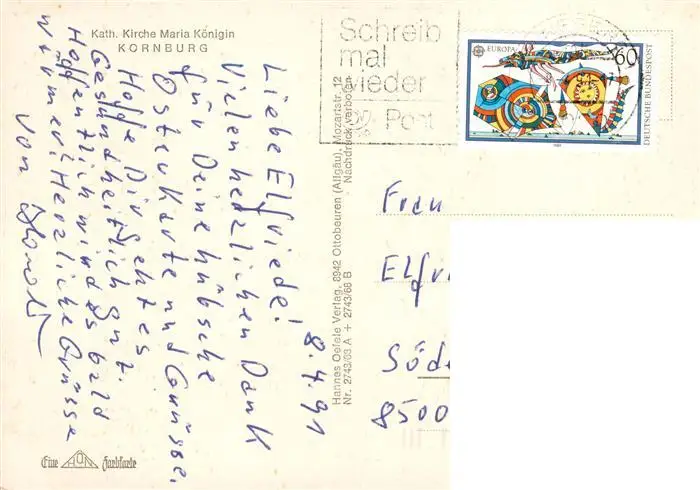 Kath. Kirche Maria Königin
KORNBURG
8.4.91
Liebe Elfriede!
Vielen herzlichen Dank
für Deine hübsche
Osterkarte und Grüsse.
Hoffe Dir geht es
Gesundheitlich gut.
Hoffentlich wird es bald
wärmer! Herzliche Grüsse
von
Eine HON Farbkarte
Hannes Oefele Verlag, 8942 Ottobeuren (Allgäu), Mozartstr. 12
Nr. 2743/63 A + 2743/68 B Nachdruck verboten
Schreib
mal
wieder
Post
EUROPA
60
DEUTSCHE BUNDESPOST
1989
Frau
Elfri
Söd
8500